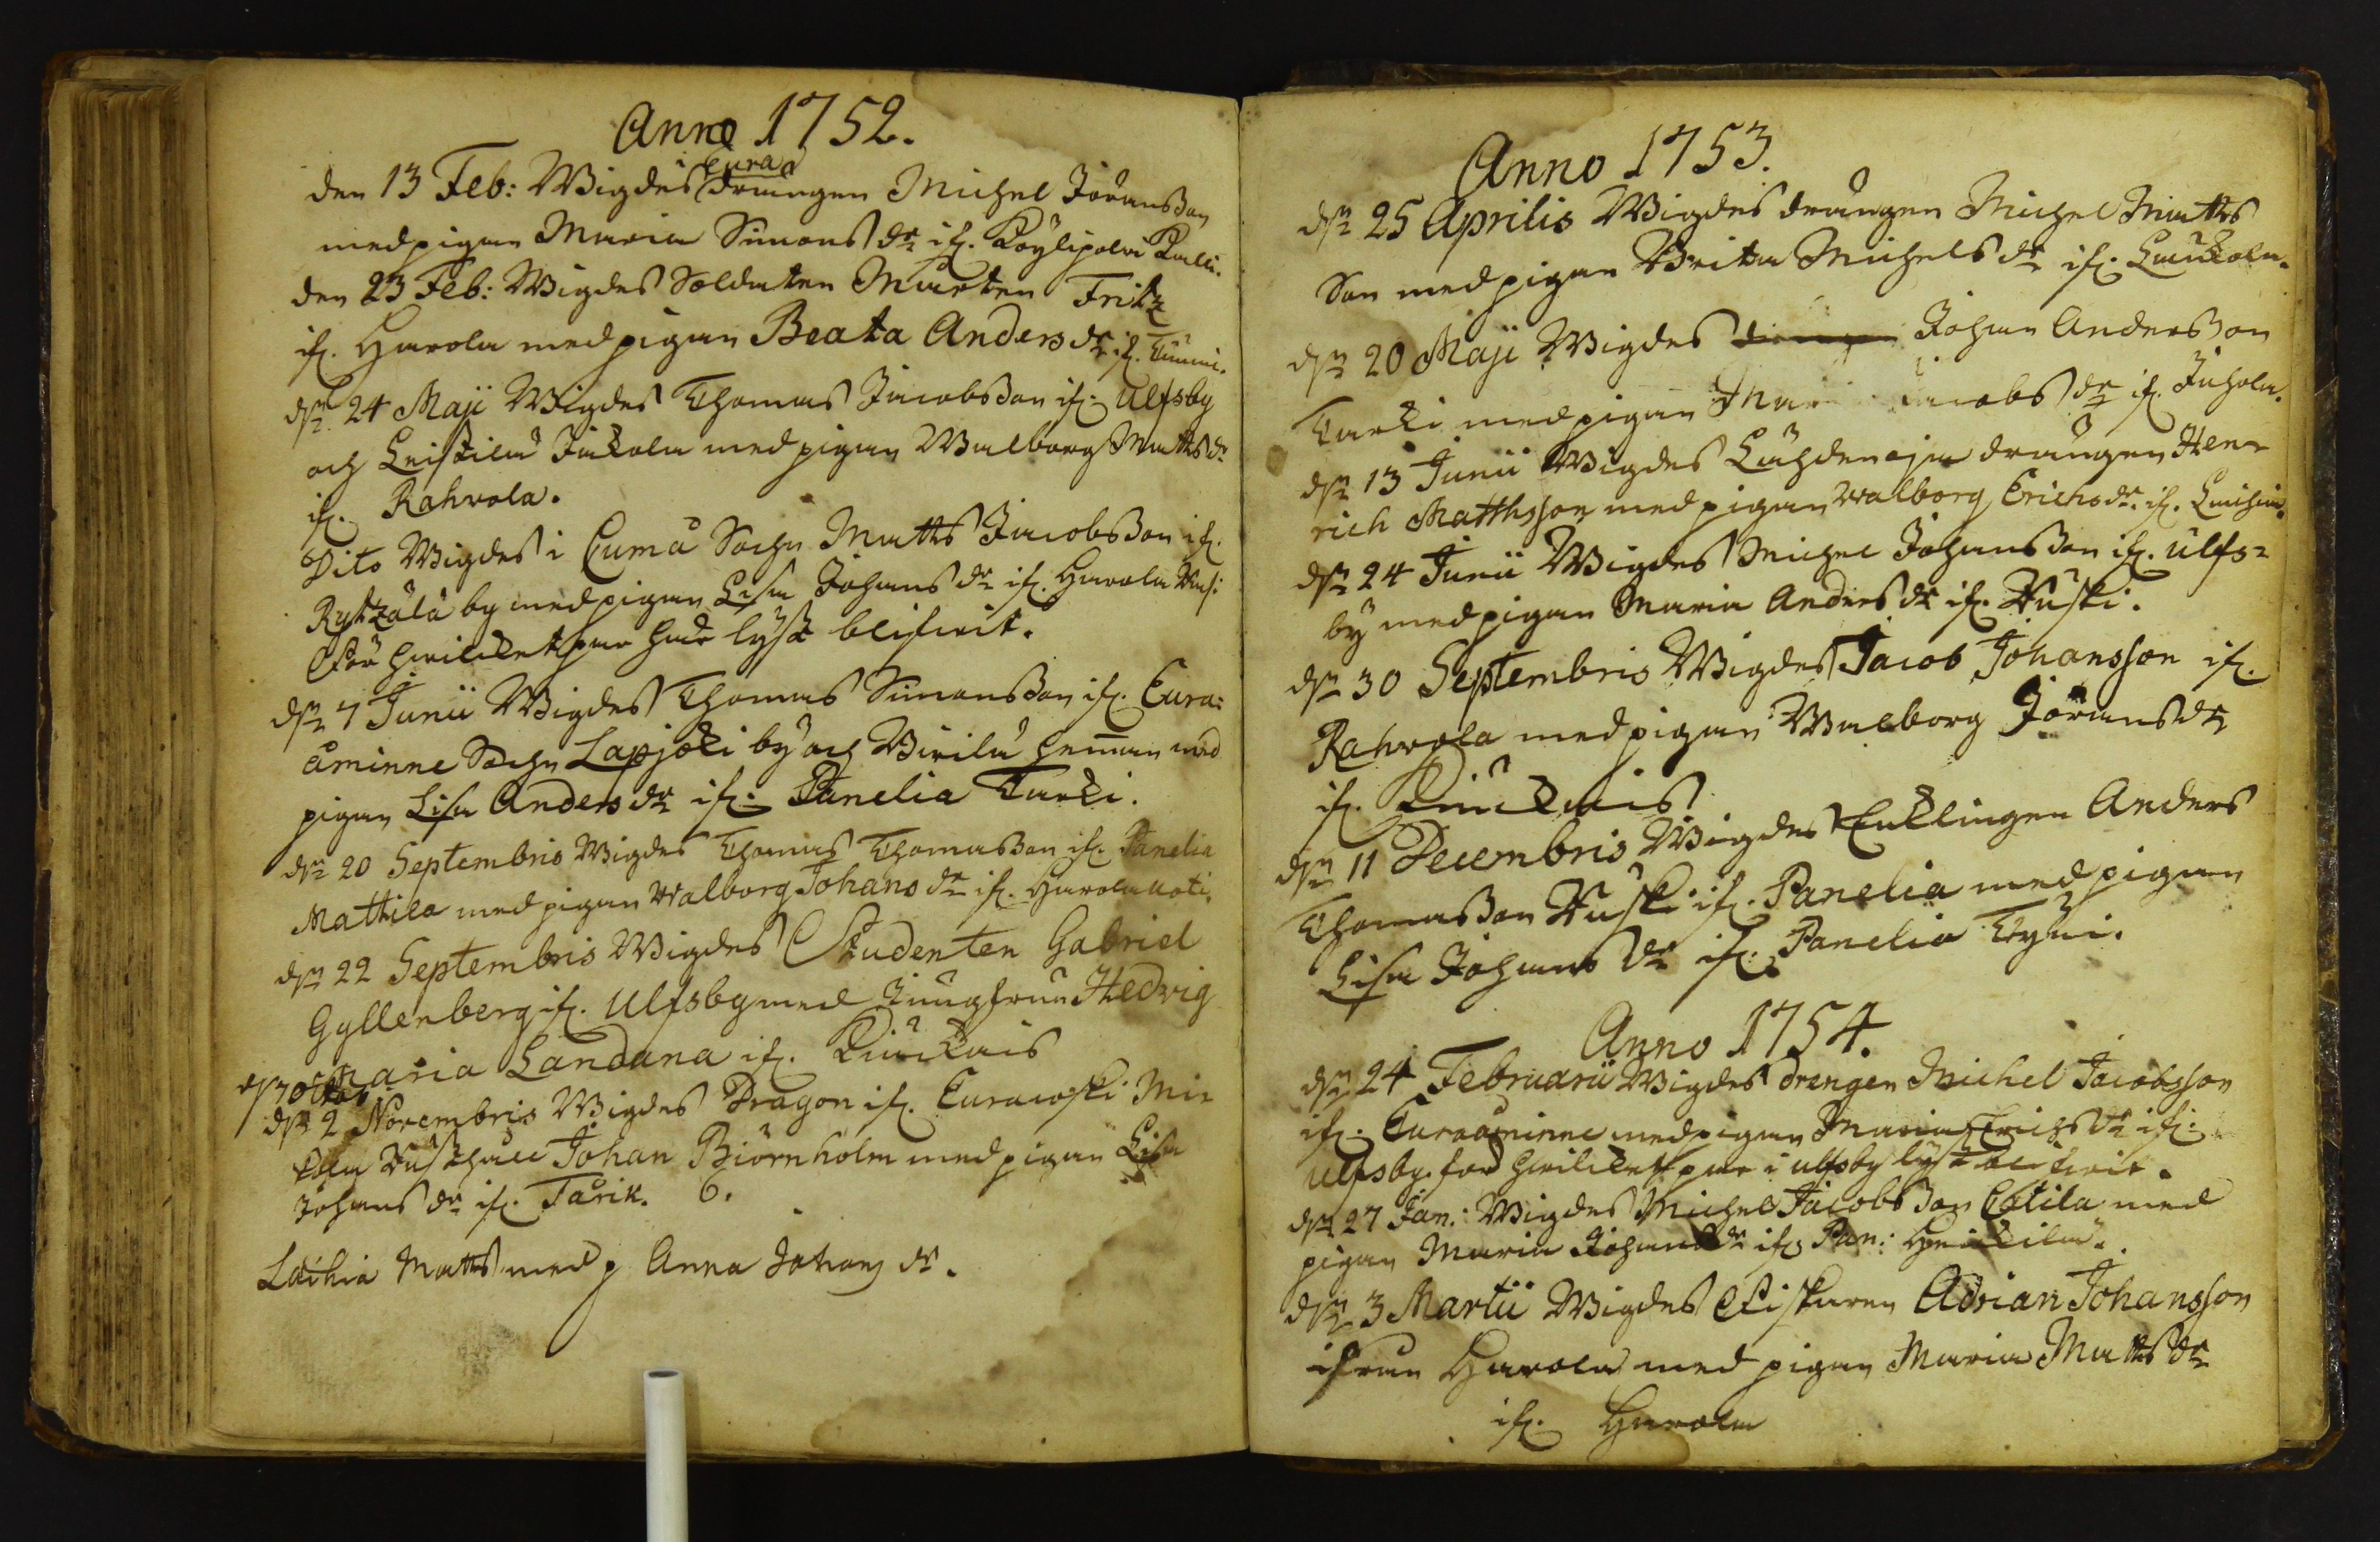 Anno 1752.
i Eura
den 13 Feb: Wigdes drängen Michel Jöransson
med pigan Maria Simons dr if. Köylipolvi Kalli.
den 23 Feb: Wigdes Soldaten Mårten Fritz
if. Harola med pigan Beata Anders dr if.
dn 24 Maji Wigdes Thomas Jacobsson if. Ulfsby
och Leistilä Jukola med pigan Walborg Matts dr
if. Rahvola.
Dito Wigdes i Cumå Sochn Matts Jacobsson if.
by med pigan Lisa Johans dr if. Harola
För hwilcket par här lyst blifwit.
dn 7 Junii Wigdes Thomas Simonsson if. Eura-
åminne Sochn Lapjoki by och Wirilä hemman med
pigan Lisa Anders dr if. Panelia Tarki.
dn 20 Septembris Wigdes Thomas Thomasson if. Panelia
Mattila med pigan Walborg Johans dr if. Harola Uoti.
dn 22 Septembris Wigdes Studenten Gabriel
Gyllenberg if. Ulfsby med Jungfrun Hedvig
Maria Landana if. Kiuckais
dn 2 Novembris Wigdes Dragon if. Eurakoski Mi-
Johan Biörnholm med pigan Lisa
Johans dr if. Tårik. 6.
Laihia Matts med p Anna Johans dr.
Anno 1753.
dn 25 Aprilis Wigdes drängen Michel Matts
Son med pigan Brita Michels dr if. Laukola.
dn 20 Maji Wigdes Johan Andersson
Tarki med pigan Mari Jacobs dr if. Juhola.
dn 13 Junii Wigdes drängen Hen-
rich Matthsson med pigan Walborg Erichs dr. if.
dn 24 Junii Wigdes Michel Johansson if. Ulfs-
by med pigan Maria Anders dr if.
dn 30 Septembris Wigdes Jacob Johansson if.
Rahvola med pigan Walborg Jörans dr
if. Kiuckais
dn 11 Decembris Wigdes Enklingen Anders
Thomasson if. Panelia med pigan
Lisa Johans dr if. Panelia
Anno 1754.
dn 24 Februarii Wigdes drengen Michel Jacobsson
if. Euraåminne med pigan Maria Erichs dr if.
Ulfsby. för hwilcket par i ulfsby lyst blifwit.
dn 27 Jan: Wigdes Michel Jacobsson Cotila med
pigan Maria Johans dr if. Pan: Heickilä.
dn 3 Martii Wigdes Fiskaren Adrian Johansson
ifrån Harola med pigan Maria Matts dr
if. Harola